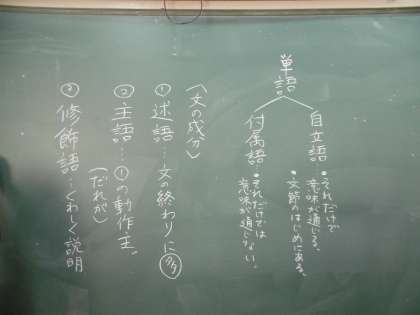 単語
自立語
・それだけで
意味が通じる。
・文節のはじめにある。
付属語
・それだけでは
意味が通じない。
(文の成分)
①述語…文の終わりに多い
②主語…①の動作主。
(だれが)
③修飾語…くわしく説明